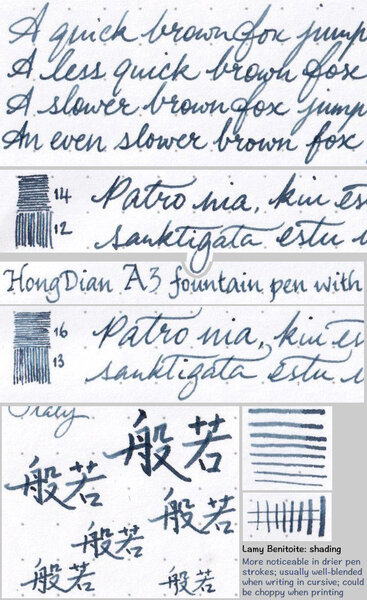 A quick brown fox jump
A less quick brown fox
A slower brown fox jump
An even slower brown fox
14
12
Patro nia, kiu es
sanktigata estu
HongDian A3 fountain pen with
16
13
Patro nia, kiu es
sanktigata estu
般若
般若
般若
般若
般若
般若
Lamy Benitoite: shading
More noticeable in drier pen
strokes; usually well-blended
when writing in cursive; could
be choppy when printing